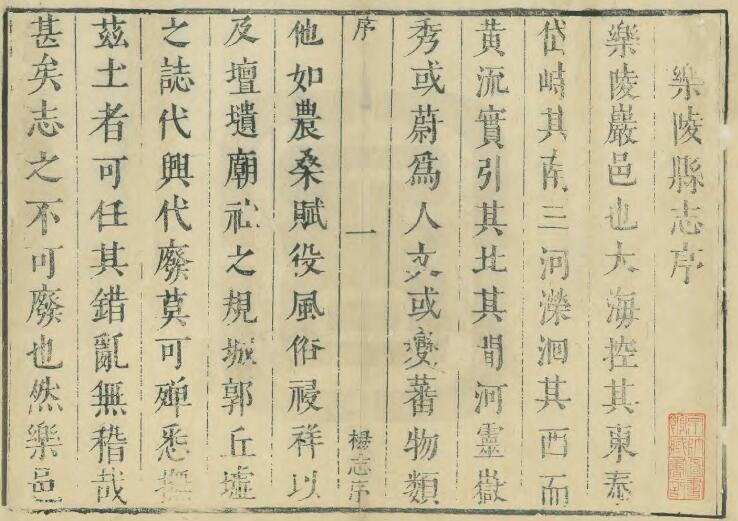 樂陵縣志序
樂陵巖邑也大海控其東泰
岱峙其南三河濼洄其西而
黃流實引其北其間河靈嶽
秀或蔚爲人文或變蕃物類
序
一
楊志序
他如農桑賦役風俗祲祥以
及壇壝廟祀之規城郭丘墟
之誌代興代廢莫可殫悉撫
茲土者可任其錯亂無稽哉
甚矣志之不可廢也然樂邑